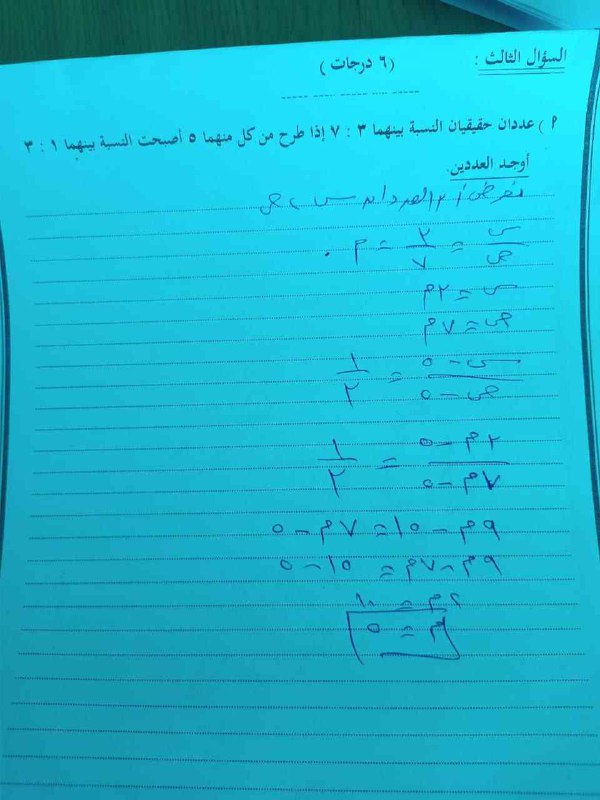 السؤال الثالث :
( ٦ درجات )
أ ) عددان حقيقيان النسبة بينهما ٣ : ٧ إذا طرح من كل منهما ٥ أصبحت النسبة بينهما ١ : ٣
أوجد العددين.
نفرض أن العددان س ، ص
س/ص = ٣/٧ = م
س = ٣م
ص = ٧م
س - ٥/ص - ٥ = ١/٣
٣م - ٥/٧م - ٥ = ١/٣
٩م - ١٥ = ٧م - ٥
٩م - ٧م = ١٥ - ٥
٢م = ١٠
م = ٥